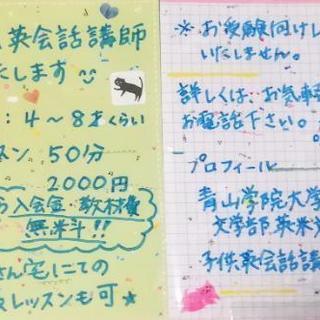 英会話講師
たします
：4～8才くらい
スン 50分
2000円
ら入会金・教材費
無料!!
さん宅にての
レッスンも可★
※お受験向けし
いたしません。
詳しくは、お気軽
お電話下さい。
プロフィール
青山学院大学
文学部英米文
子供英会話講